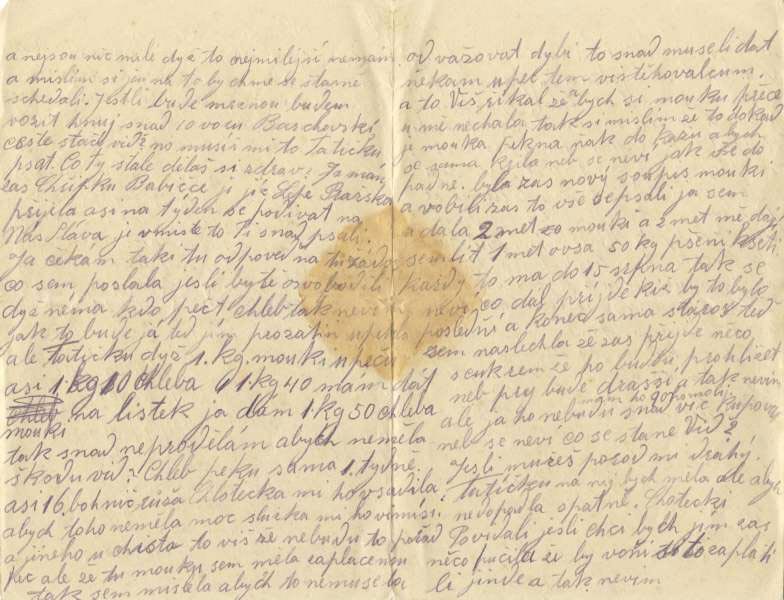 a nejsou nic malé dyž to nejmilejší nemám
a mislím si jen na to bychme se štastně
schedali. Jestli bude meznou budem
vozit hnuj snad 10 vozu Barchovskí
ceste stačí vidˇ no musíš mi to Tatíčku
psat. Co ty stale děláš si zdrav? Ja mám
zas Chřipku Babičce ji je Lépe Pražska
přijela asi na tyden se podívat na
Nás Slava je v miste to Ti snad psali.
Ja čekám taki tu odpoveď na tu žadost
co sem poslala jesli byte osvobodili
dyž nemá kdo péct chleb tak neví
jak to bude já teď jim prozatim upeču
ale Tatyčku dyž 1. kg. mouki upeču
asi 1. kg 10 chleba a 1. kg 40 mám dát
na listek ja dám 1 kg 50 chleva
mouki
tak snad neprodělám abych neměla
škodu vid? Chleb peku sama 1. tydně
asi 16. bohnič Chotecka mi ho vsadila
abych toho neměla moc služka mi ho vimisí
a jineho u chista to víš že nebudu to pořad
Pec ale že tu mouku sem měla zaplacenou
tak sem mislela abych to nemusela
od važovat dybi to snad museli dat
někam upéct tem vistěhovalcum.
a to Viš řikal že abych si mouku přece
u mě nechala tak si mislím že to dokad
je mouka pěkna pak do kazu abych
se sama kjela neb se neví jak se do
padne. byla zas nový soupis mouki
a vobilí zas to vše sepsali ja sem
udala 2 met co mouki a 2 met mě daj
semlít 1 met ovsa 50 kg pšeni
každy to ma do 15 srpna tak se
neví co dal přijde kéž by to bylo
poslední a konec sama starost teď
sem naslechla že zas přijde něco
soukrem že po budou prohlížet
neb pry bude dražší a tak nevim
ale ja ho nebudu snad víc kupovat
neb se neví co se stane Vid?
Jesli mužeš porad mi drahý!
Tatíčku na mej bych měla ale abych
nedopadla opatně. Chotecki
Povidali jesli chci bych jim zas
něco pučila že by vozi to zaplati
li jinde a tak nevim